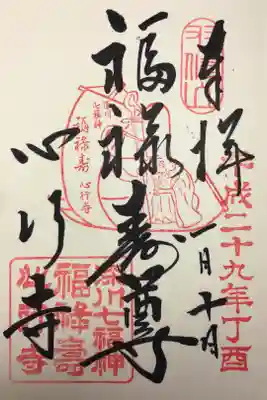 奉拝
平成二十九年丁酉
一月十日
福禄寿尊
心行寺
深川
七福神
福禄寿
心行寺
深川七福神
福禄寿
心行寺